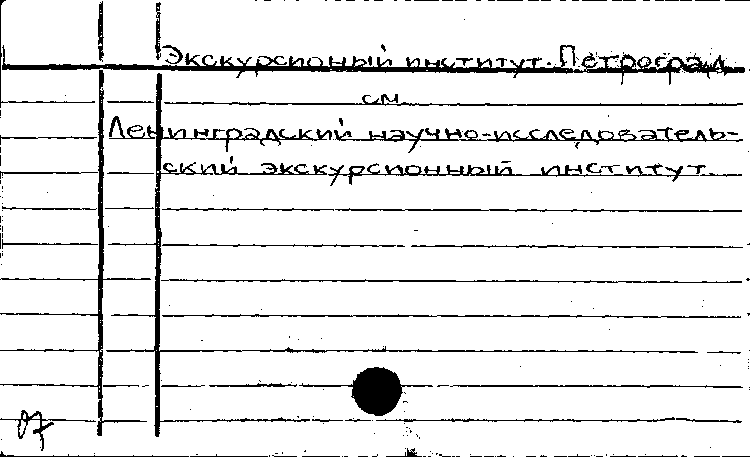 Экскурсионный институт. Петроград
см.
Ленинградский научно-исследователь-
ский экскурсионный институт.